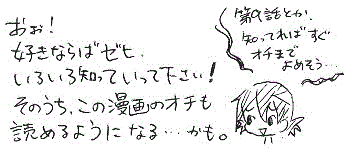 おぉ!
好きならばゼヒ、
いろいろ知っていって下さい!
そのうち、この漫画のオチも
読めるようになる…かも。
第9話とか、
知ってればすぐ
オチまで
よめそう…